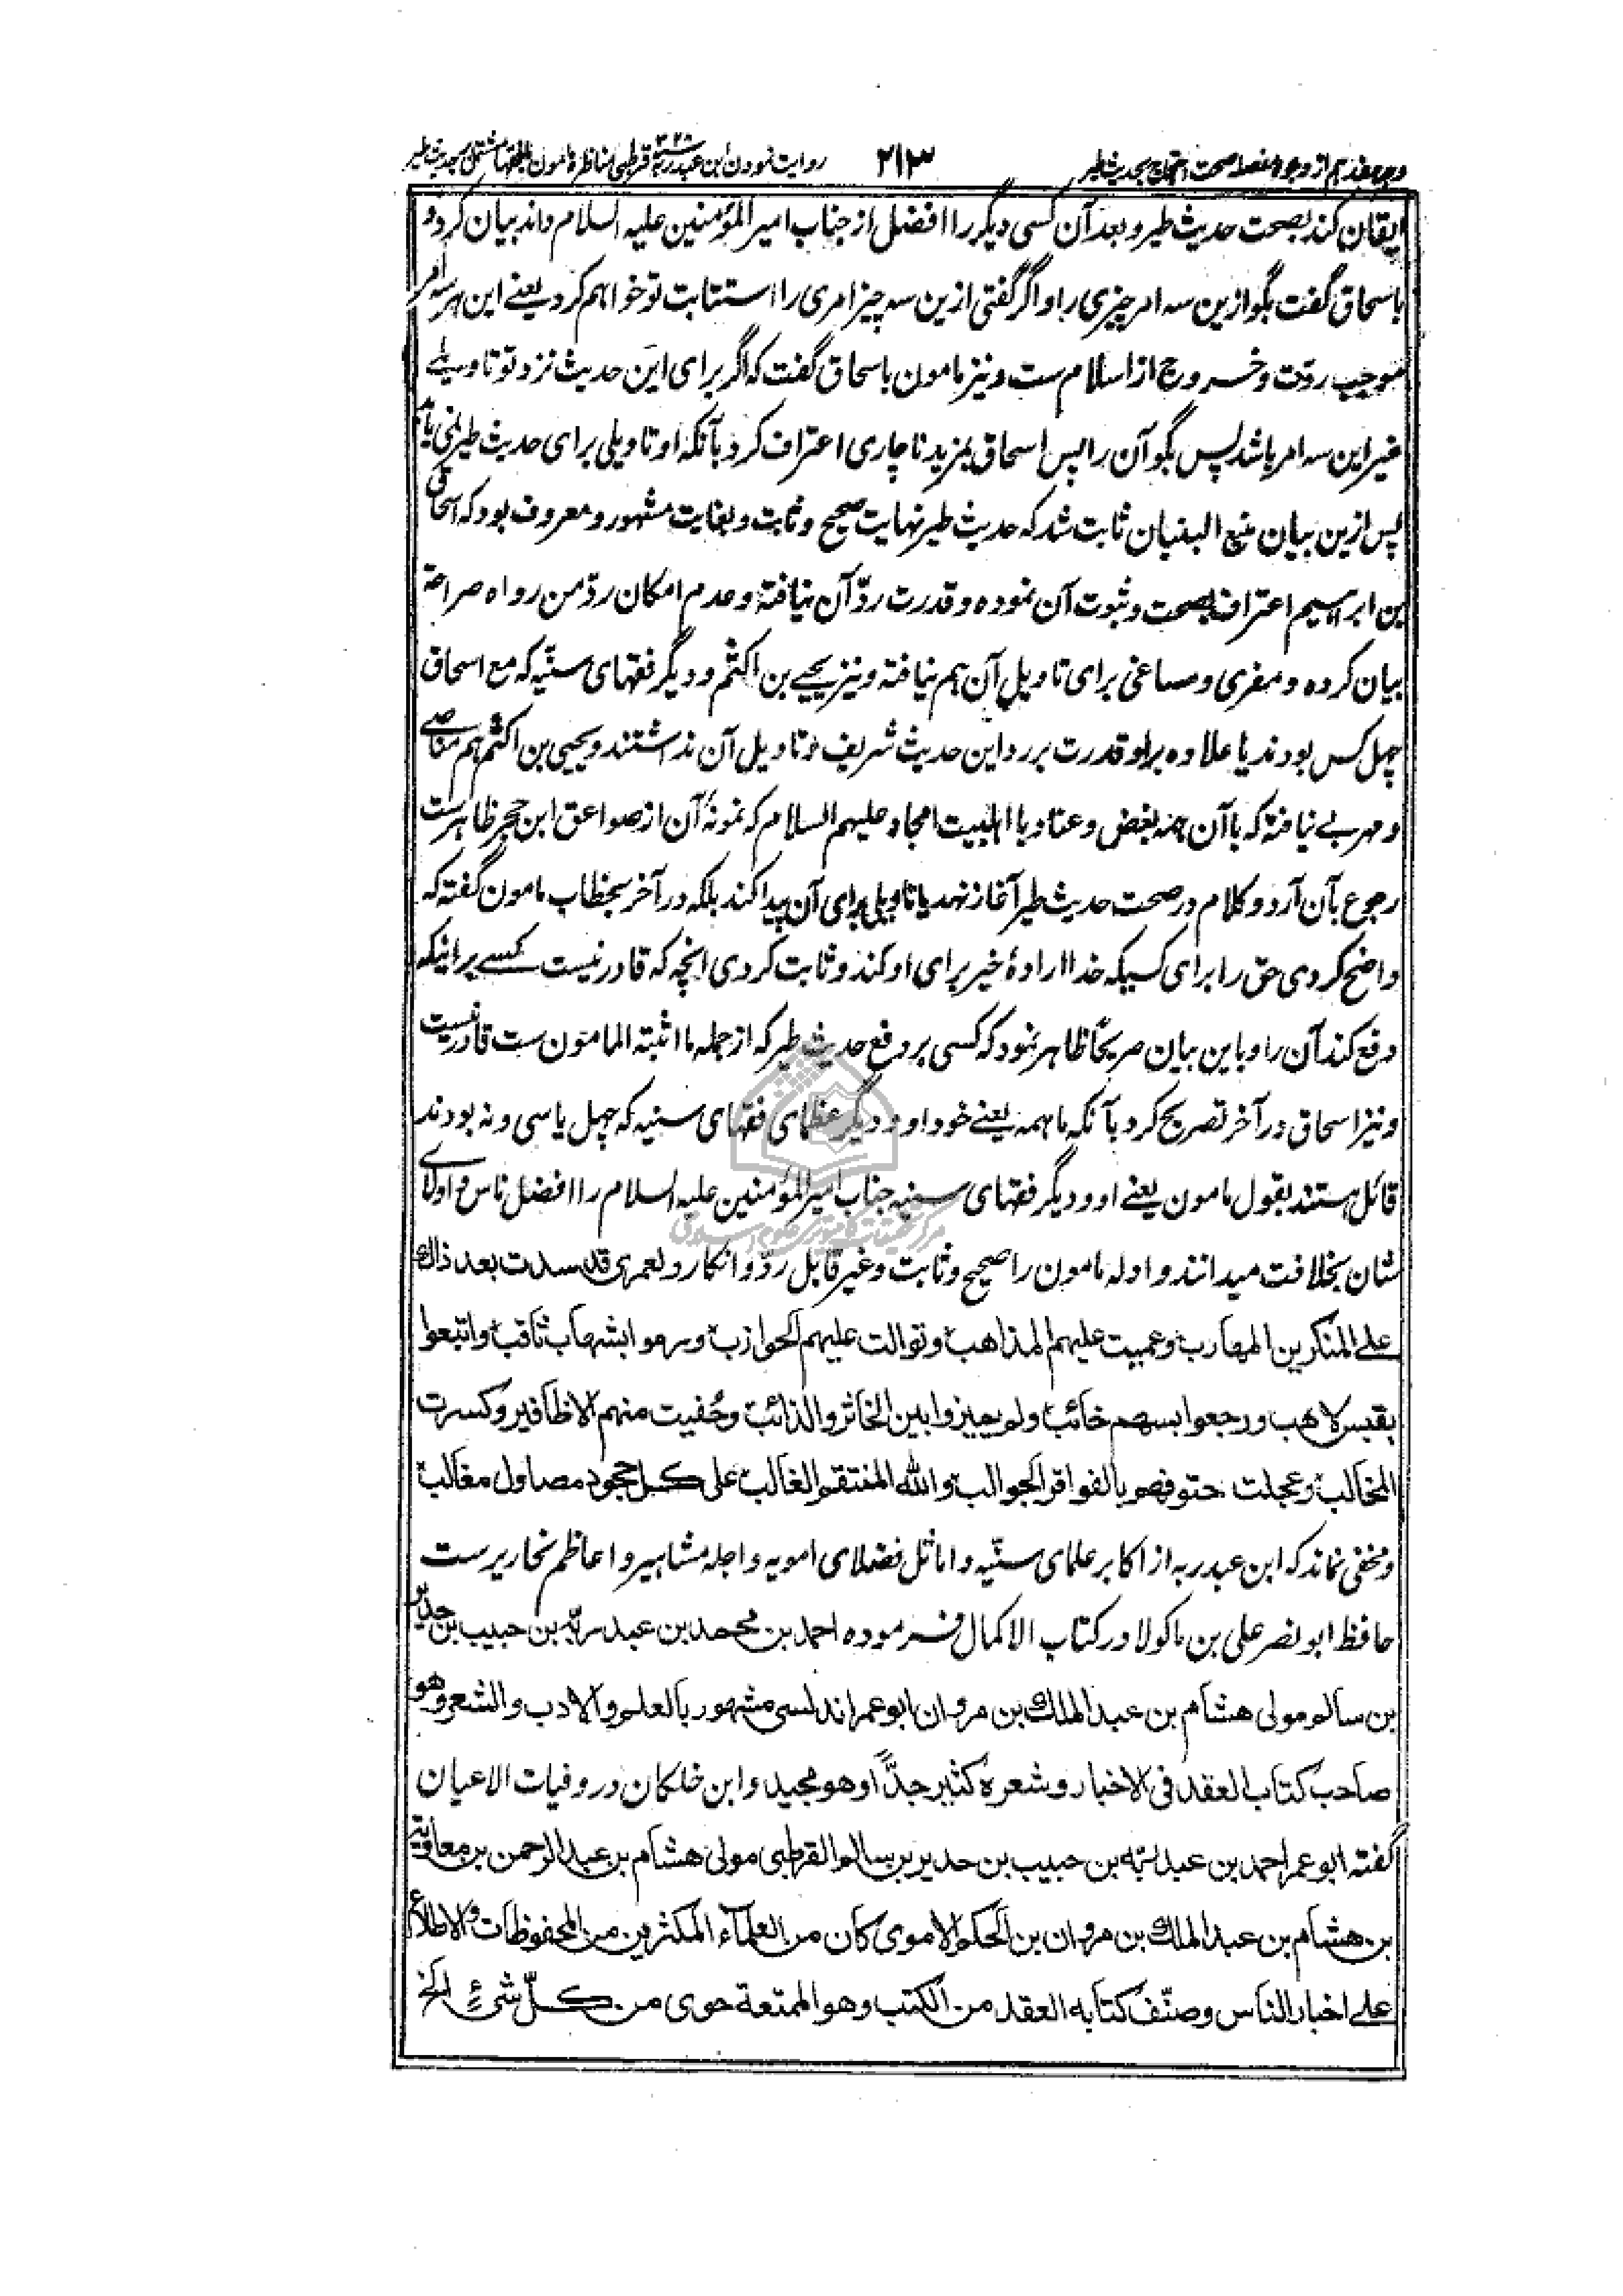 وجه هفدهم از وجوه مفصله صحت احتجاج بحدیث طیر ۲۱۳ روایت نمودن ابن عبد ربه قرطبی مناظره مامون با فقها مشتمل بحدیث طیر
ایقان کند بصحت حدیث طیر و بعد آن کسی دیگر را افضل از جناب امیر المؤمنین علیه السلام داند بیان کرد و
باسحاق گفت بگو ازین سه امر چیزی را و اگر گفتی ازین سه چیز امری را استتابت تو خواهم کرد یعنے این هر سه امر
موجب ردّت و خروج از اسلام ست و نیز مامون باسحاق گفت که اگر برای این حدیث نزد تو تاویلے
غیر این سه امر باشد پس بگو آن را پس اسحاق بمزید ناچاری اعتراف کرد بآنکه او تاویلی برای حدیث طیر نمی یابد
پس ازین بیان منیع البنیان ثابت شد که حدیث طیر نهایت صحیح و ثابت و بغایت مشهور و معروف بود که اسحاق
بن ابراهیم اعتراف بصحت و ثبوت آن نموده و قدرت ردّ آن نیافته و عدم امکان ردّ من رواه صراحة
بیان کرده و مفری و مساغی برای تاویل آن هم نیافته و نیز یحیے بن اکثم و دیگر فقهای سنّیه که مع اسحاق
چهل کس بودند یا علاوه براو قدرت بر رد این حدیث شریف و تاویل آن نداشتند و یحیی بن اکثم هم مناصے
و مهربے نیافته که با آن همه بغض و عناد با اهلبیت امجاد علیهم السلام که نمونۀ آن از صواعق ابن حجر ظاهرست
رجوع بآن آرد و کلام در صحت حدیث طیر آغاز نهد یا تاویلی برای آن پیدا کند بلکه در آخر بخطاب مامون گفته که
واضح کردی حق را برای کسیکه خدا ارادۀ خیر برای او کند و ثابت کردی انچه که قادر نیست کسے بر اینکه
دفع کند آن را و باین بیان صریحًا ظاهر نمود که کسی بر دفع حدیث طیر که از جمله ما اثبته المامون ست قادر نیست
و نیز اسحاق در آخر تصریح کرد بآنکه ما همه یعنے خود او و دیگر عظمای فقهای سنیه که چهل یا سی و نه بودند
قائل هستند بقول مامون یعنے او و دیگر فقهای سنیه جناب امیر المؤمنین علیه السلام را افضل ناس و اولای
شان بخلافت میدانند و ادله مامون را صحیح و ثابت و غیر قابل ردّ و انکار و لعمری قد سدت بعد ذلك
علے المنکرین المهارب و عمیت علیهم المذاهب و توالت علیهم الحوازب و رموا بشهاب ثاقب و اتبعوا
بقبس لاهب و رجعوا بسهم خائب و لم یمیزوا بین الخاثر و الذائب و حُفیت منهم الاظافیر و کسرت
المخالب و عجلت حتوفهم بالفواقر الجوالب و الله المنتقم الغالب علی کل جحود مصاول مغالب
و مخفی نماند که ابن عبد ربه از اکابر علمای سنّیه و اماثل فضلای امویه و اجله مشاهیر و اعاظم نحاریرست
حافظ ابو نصر علی بن ماکولا در کتاب الاکمال فرموده احمد بن محمد بن عبد ربّه بن حبیب بن حدیر
بن سالم مولی هشام بن عبد الملك بن مروان ابو عمر اندلسی مشهور بالعلم و الادب و الشعر و هو
صاحب کتاب العقد فی الاخبار و شعره کثیر جدًّا و هو مجید و ابن خلکان در وفیات الاعیان
گفته ابو عمر احمد بن عبد ربّه بن حبیب بن حدیر بن سالم القرطبی مولی هشام بن عبد الرحمن بن معاویة
بن هشام بن عبد الملك بن مروان بن الحکم الاموی کان من العلمآء المکثرین من المحفوظات و الاطلاع
علے اخبار الناس و صنّف کتابه العقد من الکتب و هو الممتعة حوی من کلّ شئ الخ
مرکز تحقیقات کامپیوتری علوم اسلامی